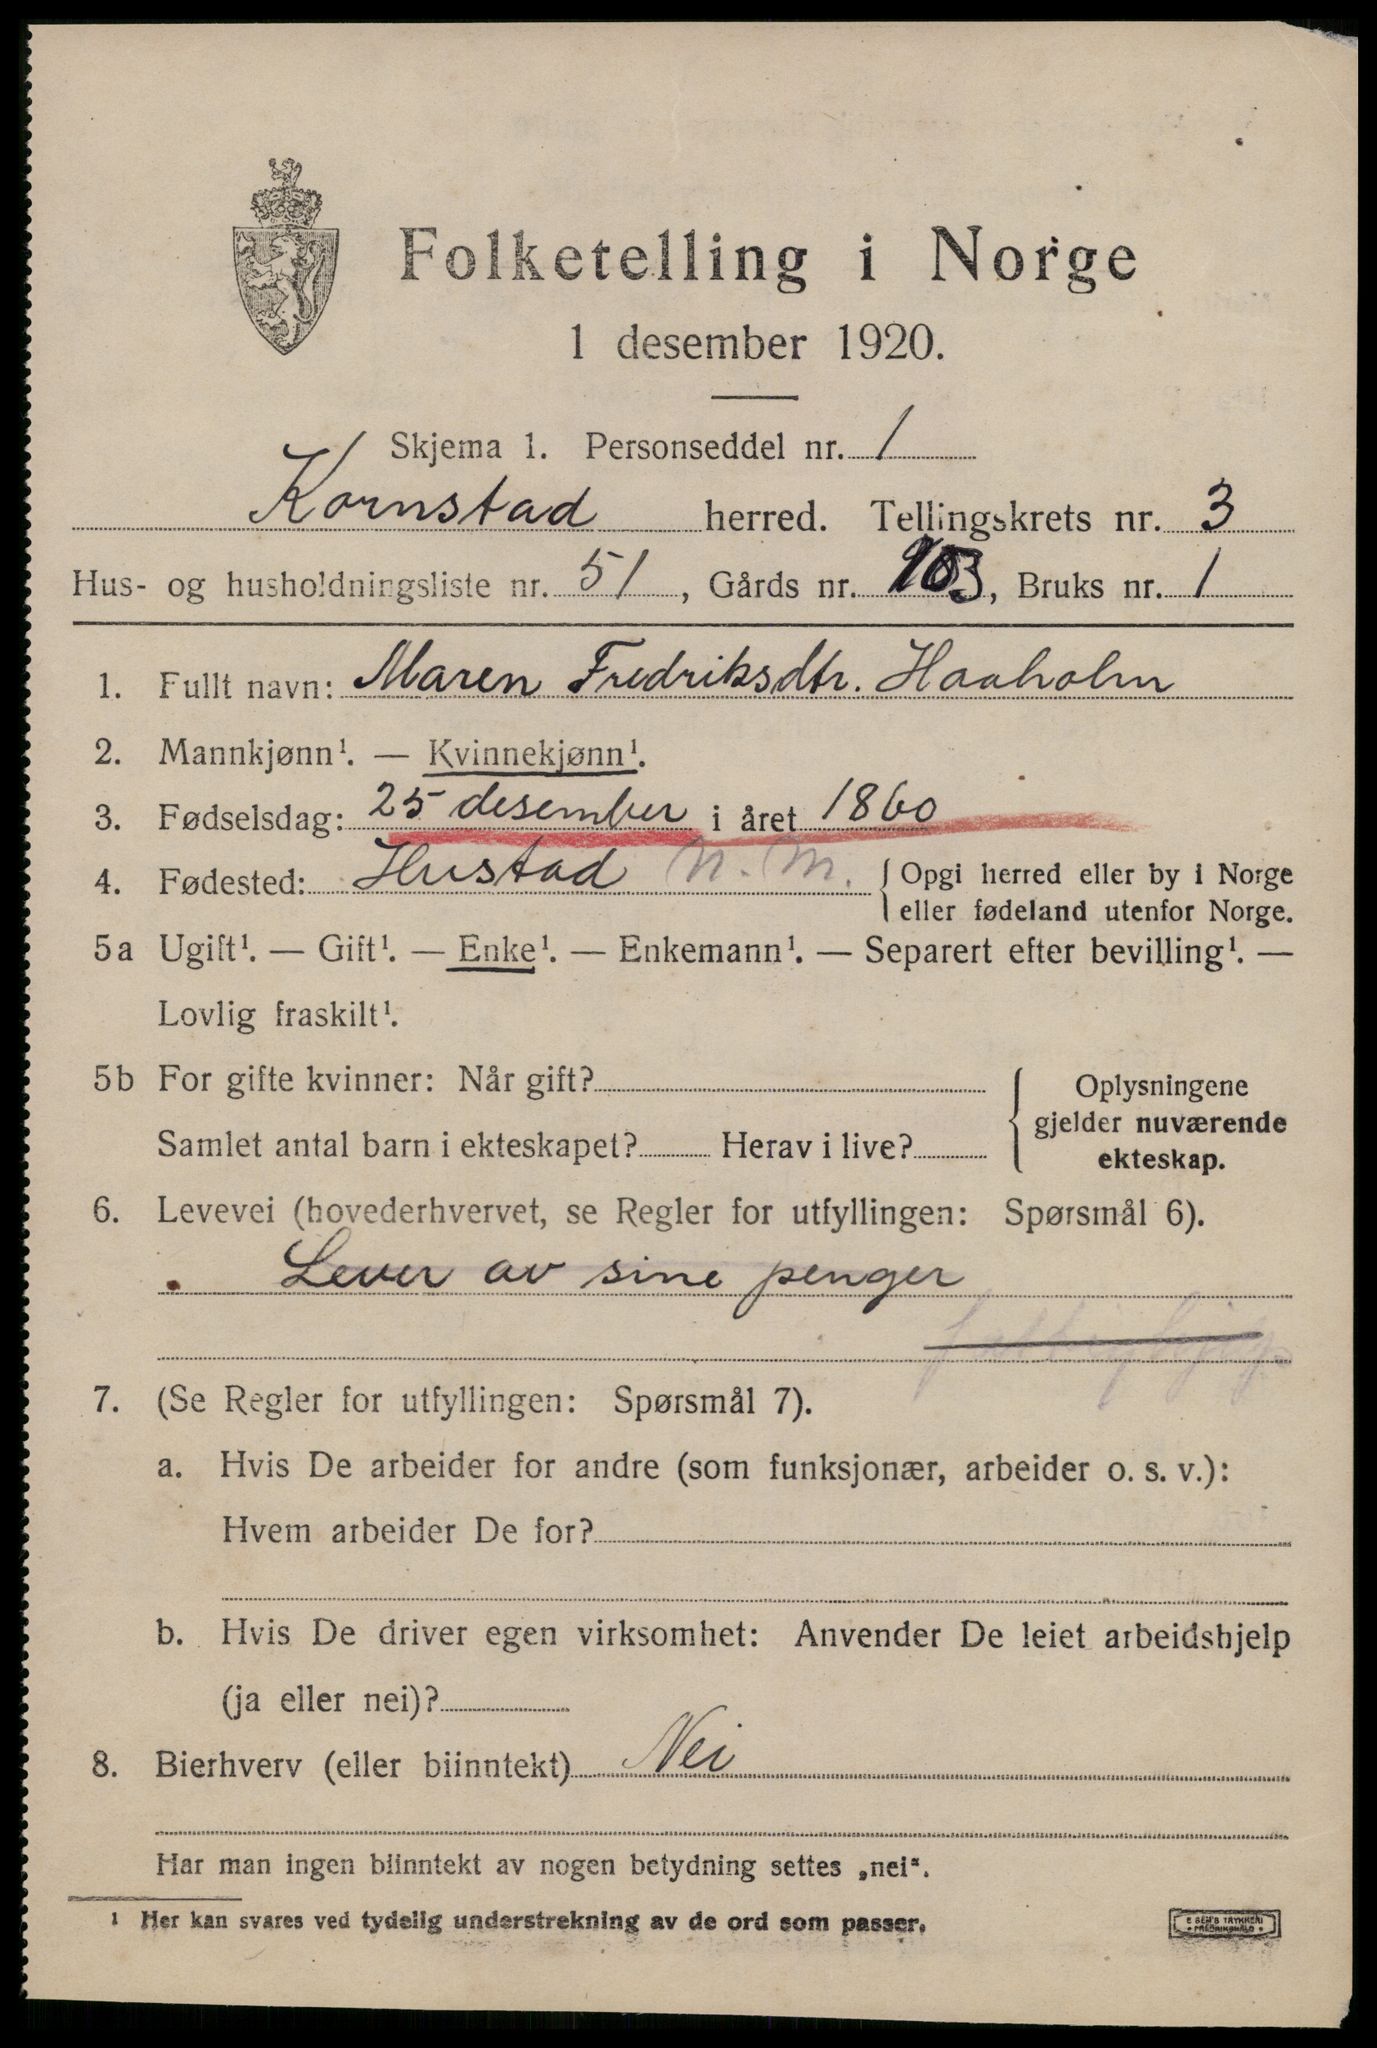 Folketelling i Norge
1 desember 1920.
Skjema 1. Personseddel nr. 1
Kornstad herred. Tellingskrets nr. 3
Hus- og husholdningsliste nr. 51, Gårds nr. 103, Bruks nr. 1
1. Fullt navn: Maren Fredriksdtr. Haaholm
2. Mannkjønn¹. — Kvinnekjønn¹.
3. Fødselsdag: 25 desember i året 1860
4. Fødested: Hustad N. M. { Opgi herred eller by i Norge
eller fødeland utenfor Norge.
5a Ugift¹. — Gift¹. — Enke¹. — Enkemann¹. — Separert efter bevilling¹. —
Lovlig fraskilt¹.
5b For gifte kvinner: Når gift?
Samlet antal barn i ekteskapet? Herav i live?
Oplysningene
gjelder nuværende
ekteskap.
6. Levevei (hovederhvervet, se Regler for utfyllingen: Spørsmål 6).
Lever av sine penger
7. (Se Regler for utfyllingen: Spørsmål 7).
a. Hvis De arbeider for andre (som funksjonær, arbeider o. s. v.):
Hvem arbeider De for?
b. Hvis De driver egen virksomhet: Anvender De leiet arbeidshjelp
(ja eller nei)?
8. Bierhverv (eller biinntekt) Nei
Har man ingen biinntekt av nogen betydning settes „nei“.
¹ Her kan svares ved tydelig understrekning av de ord som passer.
E SEM'S TRYKKERI
FREDRIKSHALD